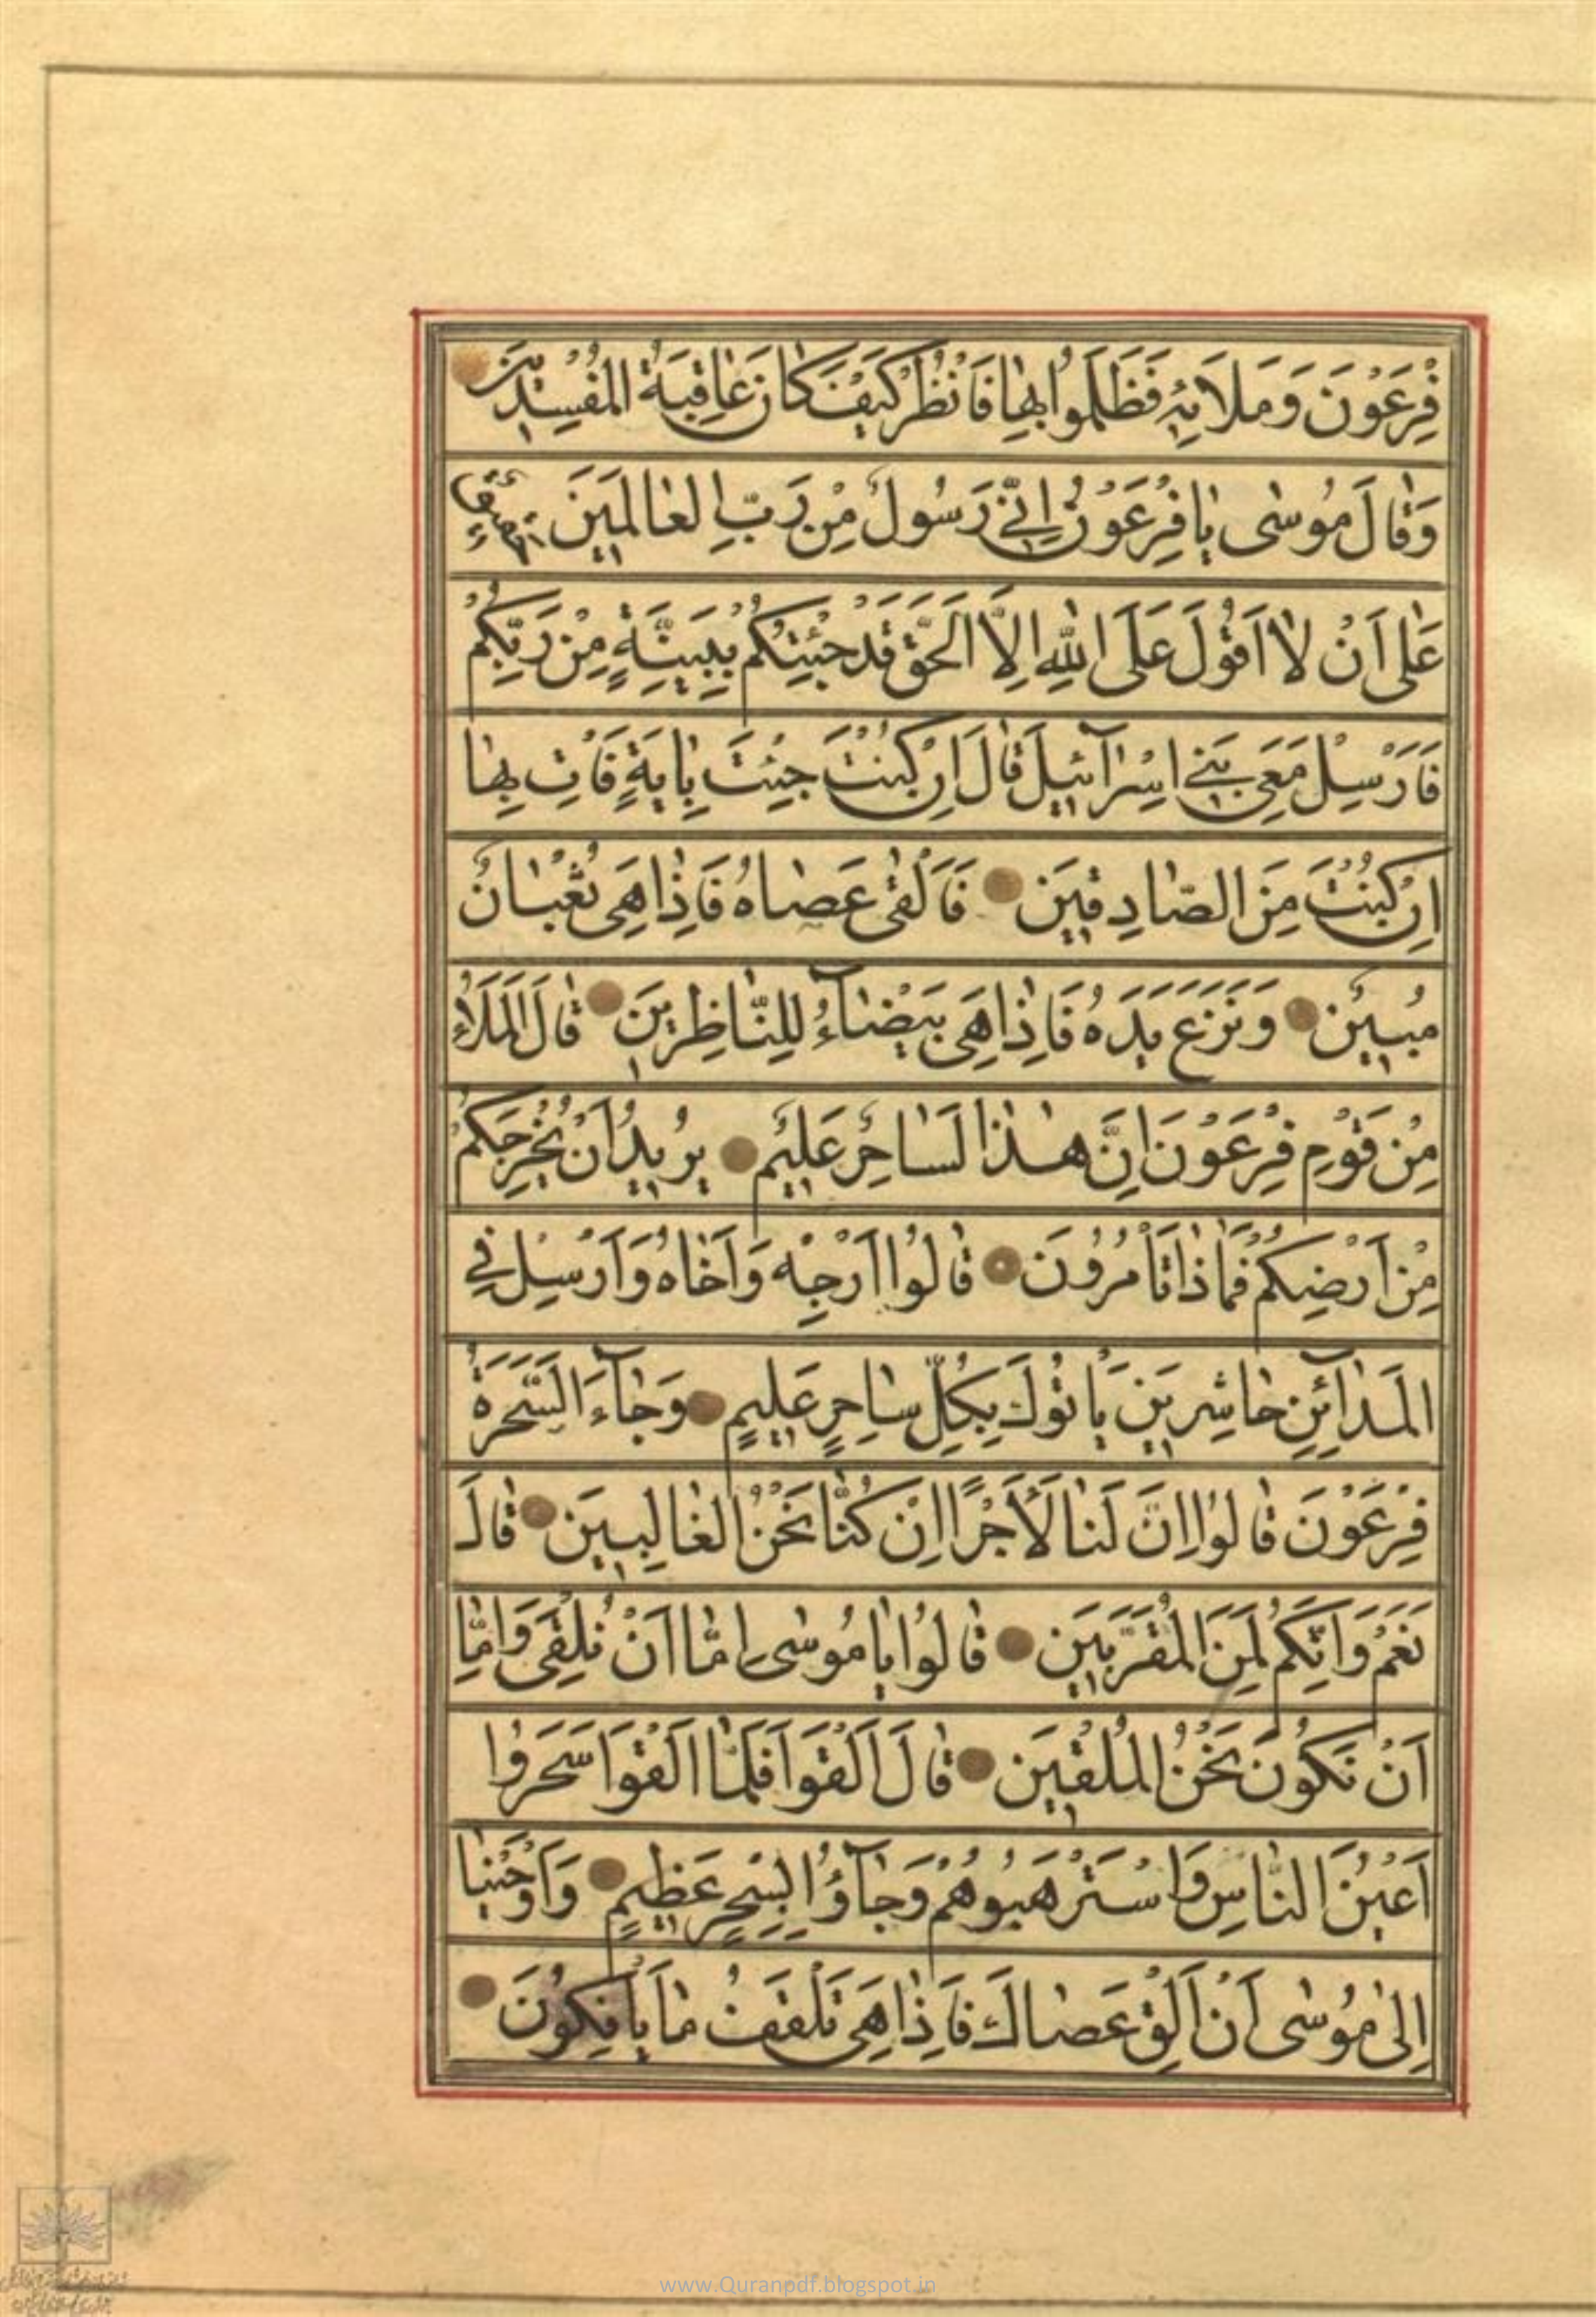 فِرْعَوْنَ وَمَلَائِهِ فَظَلَمُوا بِهَا فَانْظُرْ كَيْفَ كَانَ عَاقِبَةُ الْمُفْسِدِينَ
وَقَالَ مُوسٰى يَا فِرْعَوْنُ اِنِّي رَسُولٌ مِنْ رَبِّ الْعَالَمِينَ حَقِيقٌ
عَلٰى اَنْ لَا اَقُولَ عَلَى اللّٰهِ اِلَّا الْحَقَّ قَدْ جِئْتُكُمْ بِبَيِّنَةٍ مِنْ رَبِّكُمْ
فَاَرْسِلْ مَعِيَ بَنِي اِسْرَآئِيلَ قَالَ اِنْ كُنْتَ جِئْتَ بِاٰيَةٍ فَاْتِ بِهَا
اِنْ كُنْتَ مِنَ الصَّادِقِينَ فَاَلْقٰى عَصَاهُ فَاِذَا هِيَ ثُعْبَانٌ
مُبِينٌ وَنَزَعَ يَدَهُ فَاِذَا هِيَ بَيْضَآءُ لِلنَّاظِرِينَ قَالَ الْمَلَاُ
مِنْ قَوْمِ فِرْعَوْنَ اِنَّ هٰذَا لَسَاحِرٌ عَلِيمٌ يُرِيدُ اَنْ يُخْرِجَكُمْ
مِنْ اَرْضِكُمْ فَمَاذَا تَاْمُرُونَ قَالُوا اَرْجِهْ وَاَخَاهُ وَاَرْسِلْ فِي
الْمَدَآئِنِ حَاشِرِينَ يَاْتُوكَ بِكُلِّ سَاحِرٍ عَلِيمٍ وَجَآءَ السَّحَرَةُ
فِرْعَوْنَ قَالُوا اِنَّ لَنَا لَاَجْرًا اِنْ كُنَّا نَحْنُ الْغَالِبِينَ قَالَ
نَعَمْ وَاِنَّكُمْ لَمِنَ الْمُقَرَّبِينَ قَالُوا يَا مُوسٰى اِمَّا اَنْ تُلْقِيَ وَاِمَّا
اَنْ نَكُونَ نَحْنُ الْمُلْقِينَ قَالَ اَلْقُوا فَلَمَّا اَلْقَوْا سَحَرُوا
اَعْيُنَ النَّاسِ وَاسْتَرْهَبُوهُمْ وَجَآؤُا بِسِحْرٍ عَظِيمٍ وَاَوْحَيْنَا
اِلٰى مُوسٰى اَنْ اَلْقِ عَصَاكَ فَاِذَا هِيَ تَلْقَفُ مَا يَاْفِكُونَ
www.Quranpdf.blogspot.in